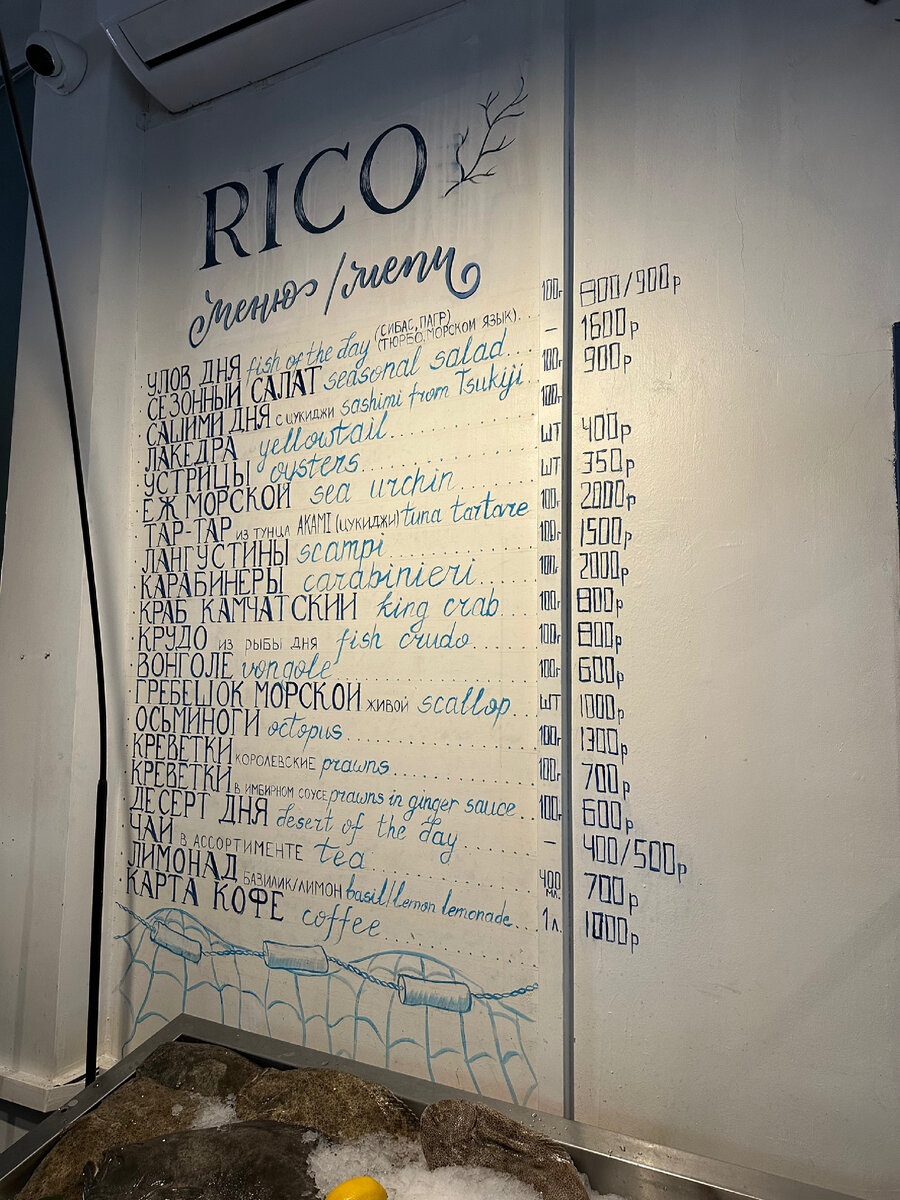 RICO
меню / menu
УЛОВ ДНЯ fish of the day (СИБАС, ПАГР) (ТЮРБО, МОРСКОЙ ЯЗЫК) 100г 800/900р
СЕЗОННЫЙ САЛАТ seasonal salad – 1600р
САШИМИ ДНЯ С ЦУКИДЖИ sashimi from Tsukiji 100г 900р
ЛАКЕДРА yellowtail 100г
УСТРИЦЫ oysters ШТ 400р
ЕЖ МОРСКОЙ sea urchin ШТ 350р
ТАР-ТАР ИЗ ТУНЦА AKAMI (ЦУКИДЖИ) tuna tartare 100г 2000р
ЛАНГУСТИНЫ scampi 100г 1500р
КАРАБИНЕРЫ carabinieri 100г 2000р
КРАБ КАМЧАТСКИЙ king crab 100г 800р
КРУДО ИЗ РЫБЫ ДНЯ fish crudo 100г 800р
ВОНГОЛЕ vongole 100г 600р
ГРЕБЕШОК МОРСКОЙ ЖИВОЙ scallop ШТ 1000р
ОСЬМИНОГИ octopus 100г 1300р
КРЕВЕТКИ КОРОЛЕВСКИЕ prawns 100г 700р
КРЕВЕТКИ В ИМБИРНОМ СОУСЕ prawns in ginger sauce 100г 600р
ДЕСЕРТ ДНЯ desert of the day – 400/500р
ЧАЙ В АССОРТИМЕНТЕ tea 400 МЛ. 700р
ЛИМОНАД БАЗИЛИК/ЛИМОН basil/lemon lemonade 1 Л. 1000р
КАРТА КОФЕ coffee